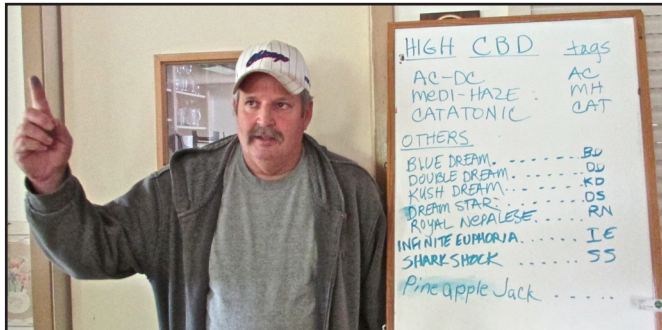 HIGH CBD tags
AC-DC AC
MEDI-HAZE : MH
CATATONIC CAT
OTHERS
BLUE DREAM. - - - - - - BD
DOUBLE DREAM. - - - - - DD
KUSH DREAM. - - - - - - KD
DREAM STAR: - - - - - DS
ROYAL NEPALESE. - - - - RN
INFINITE EUPHORIA. . . . . . IE
SHARK SHOCK . . . . . . SS
Pineapple Jack . . . . . .